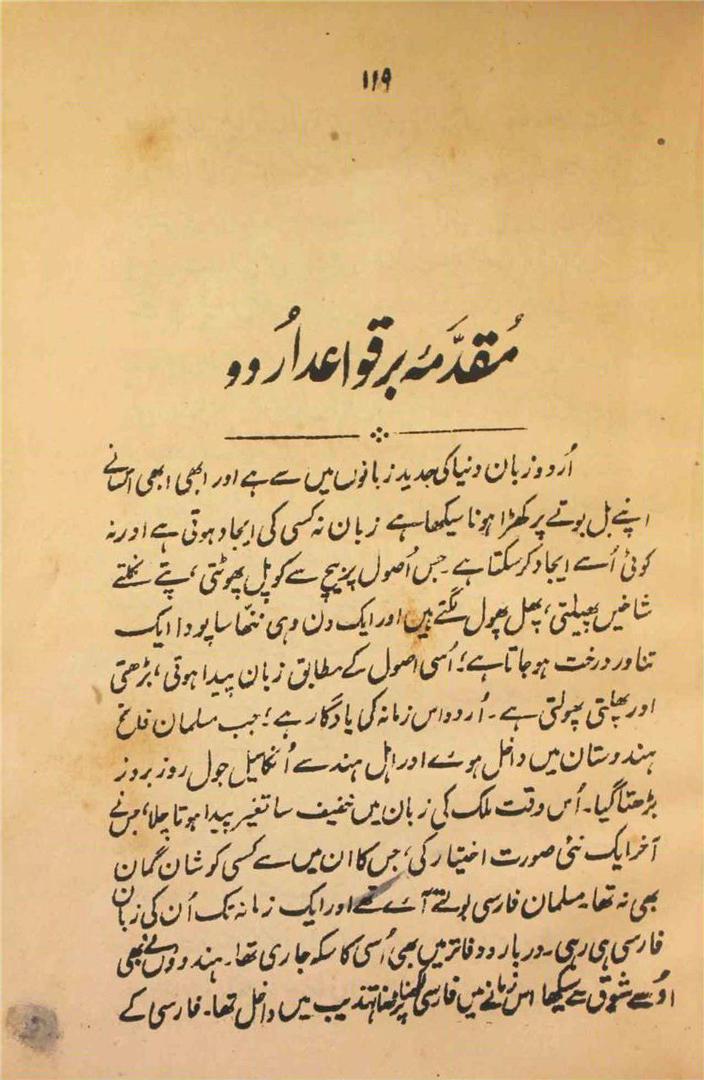 ۱۱۹
مُقدَّمۂ بر قواعد اُردو
اُردو زبان دنیا کی جدید زبانوں میں سے ہے اور ابھی ابھی اُسنے
اپنے بل بوتے پر کھڑا ہونا سیکھا ہے زبان نہ کسی کی ایجاد ہوتی ہے اور نہ
کوئی اُسے ایجاد کر سکتا ہے۔ جس اُصول پر بیج سے کوپل پھوٹتی، پتے نکلتے
شاخیں پھیلتی، پھل پھول لگتے ہیں اور ایک دن وہی ننھا سا پودا ایک
تناور درخت ہو جاتا ہے؛ اُسی اصول کے مطابق زبان پیدا ہوتی، بڑھتی
اور پھلتی پھولتی ہے۔ اُردو اس زمانہ کی یادگار ہے؛ جب مسلمان فاتح
ہندوستان میں داخل ہوے اور اہل ہند سے اُنکا میل جول روز بروز
بڑھتا گیا۔ اُس وقت ملک کی زبان میں خفیف سا تغیر پیدا ہوتا چلا، جس نے
آخر ایک نئی صورت اختیار کی، جس کا ان میں سے کسی کو شان گمان
بھی نہ تھا۔ مسلمان فارسی بولتے آے تھے اور ایک زمانہ تک اُن کی زبان
فارسی ہی رہی۔ دربار و دفاتر میں بھی اُسی کا سکہ جاری تھا۔ ہندوؤں نے بھی
اوُسے شوق سے سیکھا اس زمانے میں فارسی لکھنا پڑھنا تہذیب میں داخل تھا۔ فارسی کے